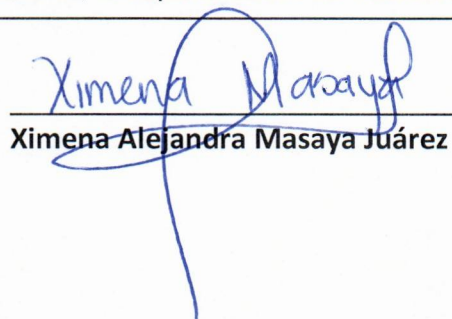 Ximena Masaya
Ximena Alejandra Masaya Juárez